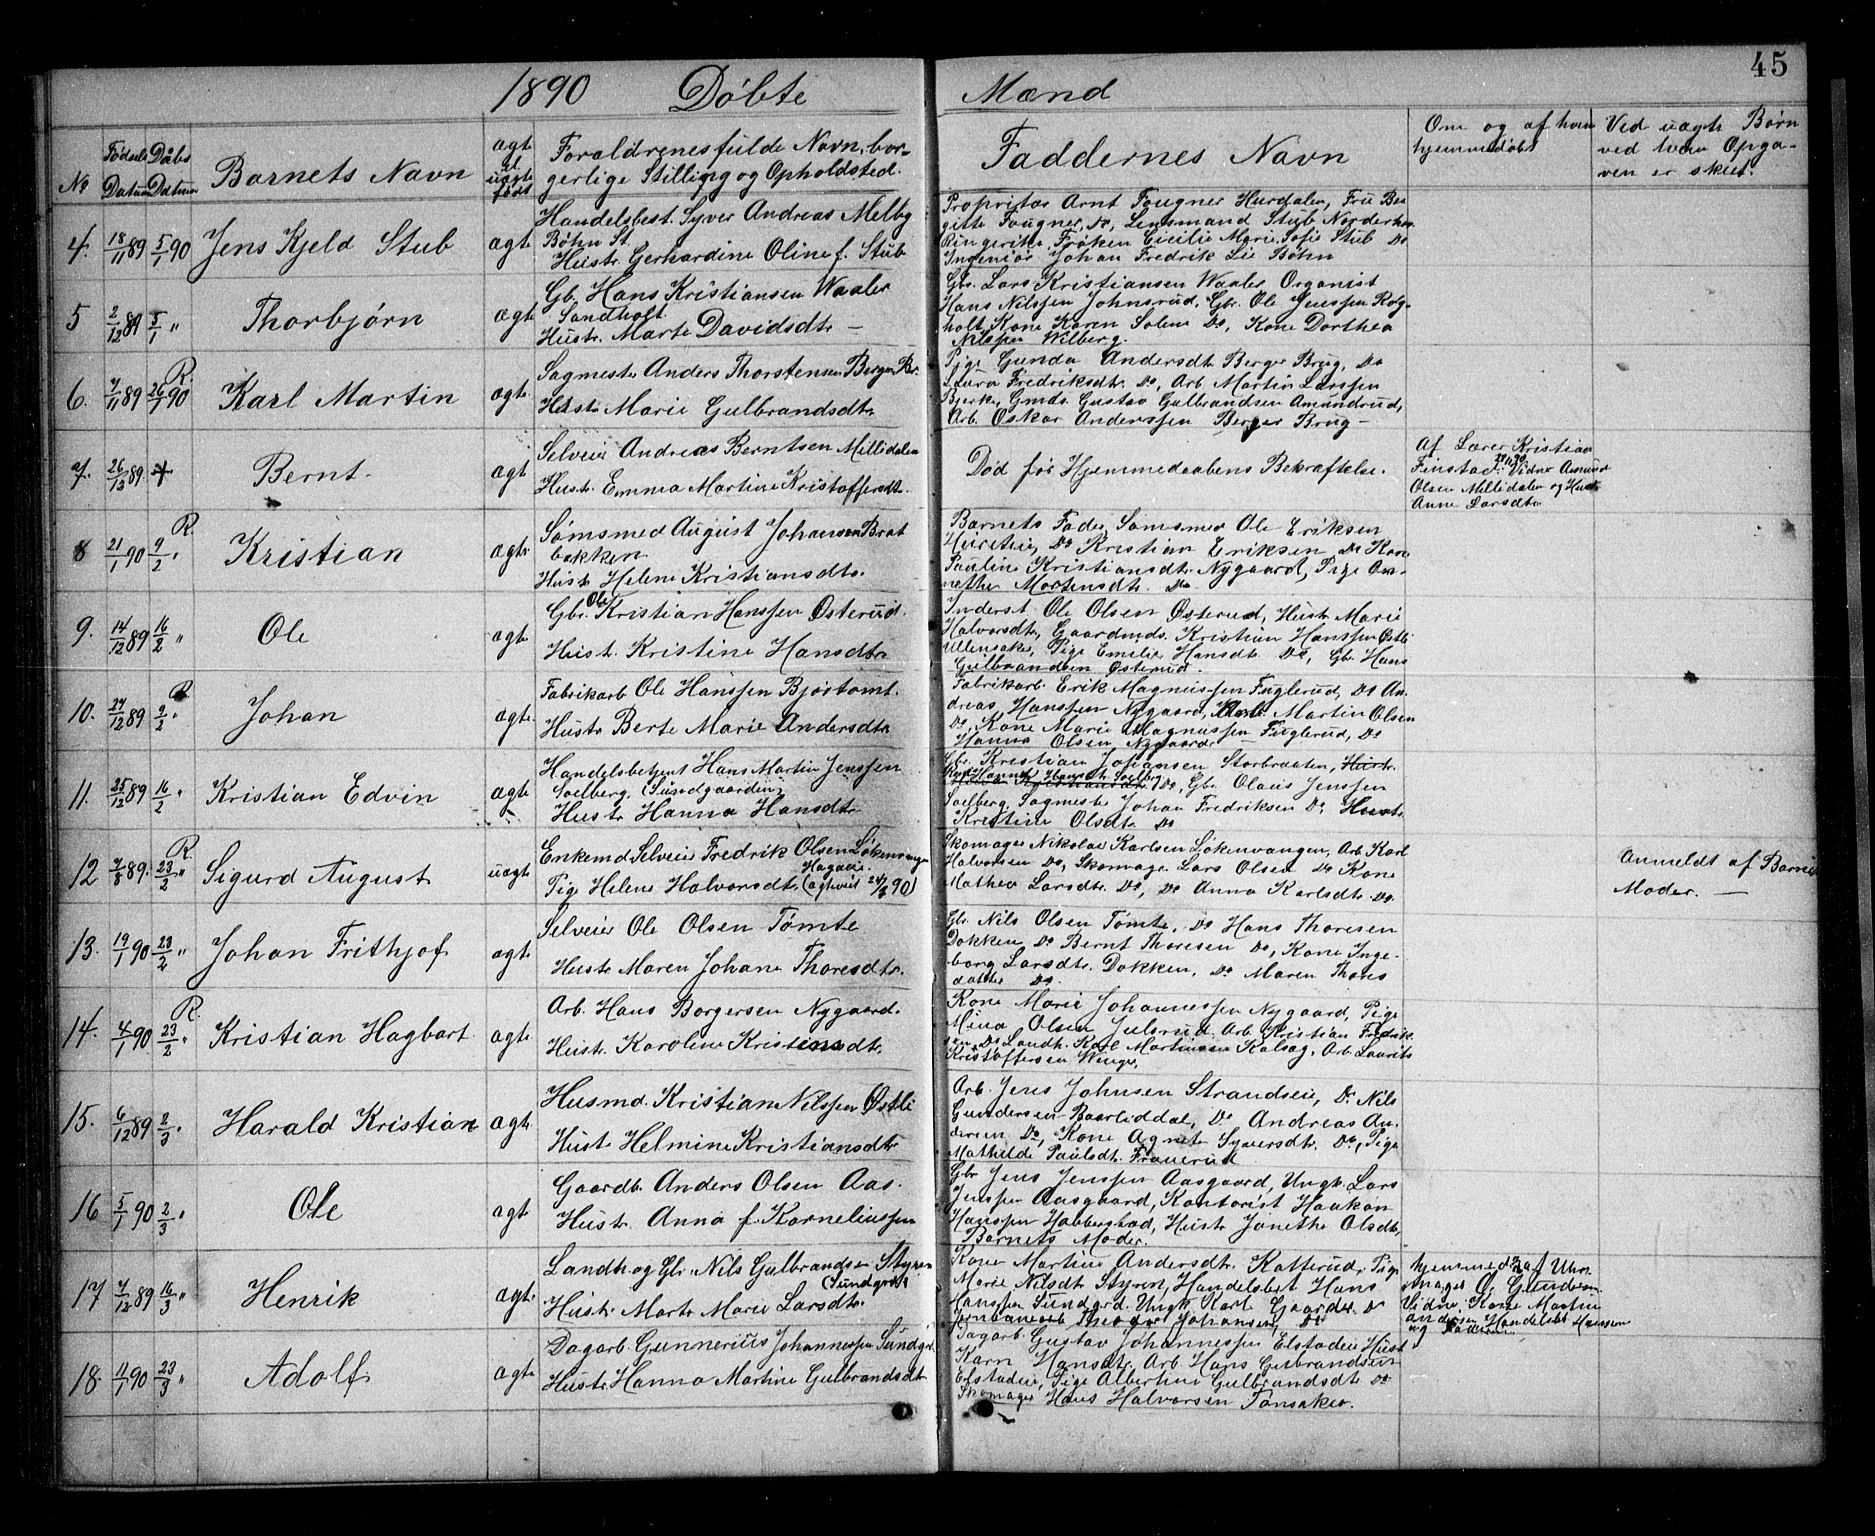 45
1890 Døbte Mænd
No
Fødsels Datum
Dåbs Datum
Barnets Navn
ægt el uægte født
Forældrenes fulde Navn, borgerlige Stilling og Opholdsted.
Faddernes Navn
Om og af hvem hjemmedøbt
Ved uægte Børn ved hvem Opgaven er skeet.
4. 18/11 89 5/1 90 Jens Kjeld Stub ægte
Handelsbest. Syver Andreas Melby
Bøhn St.
Hustr. Gerhardine Oline f. Stub
Proprietær Arnt Fougner Hurdalen, Fru Bergitte
Fougner, Do, Lensmand Stub Norderhov
Ringerike, Frøken Cicilie Marie Sofie Stub Do
Ingeniør Johan Fredrik Lie Bøhn
5 2/12 89 5/1 " Thorbjørn ægt.
Gb. Hans Kristiansen Waaler
Sandholt
Hustr. Marte Davidsdtr —
Gbr. Lars Kristiansen Waaler Organist
Hans Nilssen Johnsrud, Gbr. Ole Jenssen Rogholt,
Kone Karen Solem Do, Kone Dorthea
Nilssen Wilberg.
6. 7/11 89 R. 26/1 90 Karl Martin ægt.
Sagmester Anders Thorstensen Berger Br.
Hustr Marie Gulbrandsdtr
Pige Gunda Andersdt. Berger Brug, Do
Laura Fredriksdtr. Do, Arb. Martin Larssen
Bjerke, Gmds. Gustav Gulbrandsen Amundrud,
Arb. Oskar Anderssen Berger Brug —
7. 26/12 89 Bernt ægt
Selveier Andreas Berntsen Millidalen
Hustr. Emma Martine Kristoffersdt.
Død før Hjemmedaabens Bekræftelse.
Af Lærer Kristian
Finstad Vidner Amund
Olsen Millidalen og Hustr
Anne Larsdtr
8 21/1 90 R. 9/2 " Kristian ægt.
Sømsmed August Johansen Bratbakken
Hustr Helene Kristiansdtr.
Barnets Fader, Sømsmed Ole Eriksen
Do Kristian Eriksen Do Kone
Pauline Kristiansdtr. Nygaard, Pige
Mortensdt. Do
9. 14/12 89 16/2 " Ole ægt.
Gbr. Ole Kristian Hanssen Østerud.
Hust. Kristine Hansdtr
Inderst Ole Olsen Østerud, Hustr Marie
Halvorsdtr, Gaardmds. Kristian Hanssen Østli
Ullensaker, Pige Emilie Hansdt. Do, Gbr Hans
Gulbrandsen Østerud.
10. 24/12 89 R 9/2 " Johan ægt.
Fabrikarb Ole Hanssen Bjørtomt.
Hustr Berte Marie Andersdtr
Fabrikarb. Erik Magnussen Fuglerud, Do Andreas
Hanssen Nygaard, Martin Olsen
Do, Kone Marie Magnussen Fuglerud, Do
Hanna Olsen Nygaard
11. 25/12 89 16/2 " Kristian Edvin ægt
Handelsbetjent Hans Martin Jenssen
Soelberg. (Sundgaarden)
Hustr Hanna Hansdtr
Gb. Kristian Johansen Storbraaten, Hustr.
Do, Gbr. Olaus Jenssen
Soelberg, Sagmester Johan Fredriksen Do Hustr.
Kristine Olsdt. Do
12 7/8 89. R. 23/2 " Sigurd August uægt
Enkemd Selveier Fredrik Olsen Løkenvangen
Pige Helene Halvorsdt. Hagaeie. (ægtviet 24/3 90)
Skomager Nikolai Karlsen Løkenvangen, Arb. Karl
Halvorsen Do, Skomager Lars Olsen Do Kone
Mathea Larsdtr. Do, Do Anna Karlsdtr. Do.
Anmeldt af Barnets
Moder. —
13. 19/1 90 23/2 " Johan Frithjof ægt.
Selveier Ole Olsen Tømte
Hustr Maren Johane Thoresdtr.
Gb. Nils Olsen Tømte, Do Hans Thoresen
Dokken Do Bernt Thoresen Do, Kone Ingeborg
Larsdtr. Dokken, Do Maren Thoresdatter
Do.
14. 4/1 90 R. 23/2 " Kristian Hagbart ægt.
Arb. Hans Borgersen Nygaard.
Hustr. Karoline Kristensdt.
Kone Marie Johannessen Nygaard, Pige
Mina Olsen Julsrud, Arb. Kristian Fredriksen
Do Landh. Karl Martinsen Kalsag, Arb. Laurits
Kristoffersen Wenger,
15. 6/12 89 2/3 " Harald Kristian ægt.
Husmd. Kristian Nilssen Østli
Hustr Helmine Kristiansdtr
Arb. Jens Johnsen Strandseie, Do Nils
Gundersen Baarliddal, Do Andreas Andersen
Do, Kone Agnete Syversdtr. Do, Pige
Mathilde Paulsdt. Frauerud
16 5/1 90 2/3 " Ole ægt.
Gaardb. Anders Olsen Aas.
Hustr. Anna f. Korneliussen
Gbr Jens Jenssen Aasgaard, Ungk. Lars
Jenssen Aasgaard, Kontorist Haakon
Hanssen Habberstad, Hustr Janethe Olsdt,
Barnets Moder.
17 7/12 89 16/3 " Henrik ægt.
Landh. og Gbr. Nils Gulbrandsen Styren
(Sundgrd)
Hustr Marte Marie Larsdtr.
Kone Martine Andersdt. Katterud, Pige
Marie Nilsdt Styren, Handelsbet Hans
Hanssen Sundgrd. Ungk Karl Gaarder Do
Jernbanearb Theodor Johansen, Do
hjemmed. af Uhrmager
O. Gundersen
Vidner: Kone Martine
Andersen Handelsbet Hanssen
og Faderen
18. 11/1 90 23/3 " Adolf ægt.
Dagarb. Gunnerius Johannessen Sundgr.
Hustr. Hanna Martine Gulbrandsdt
Dagarb. Gustav Johannessen Elstadeie Hustr
Karn Hansdtr, Arb. Hans Gulbrandsen
Elstadeie, Pige Albertine Gulbrandsdt Do
Skomager Hans Halvorsen Tonsaker.